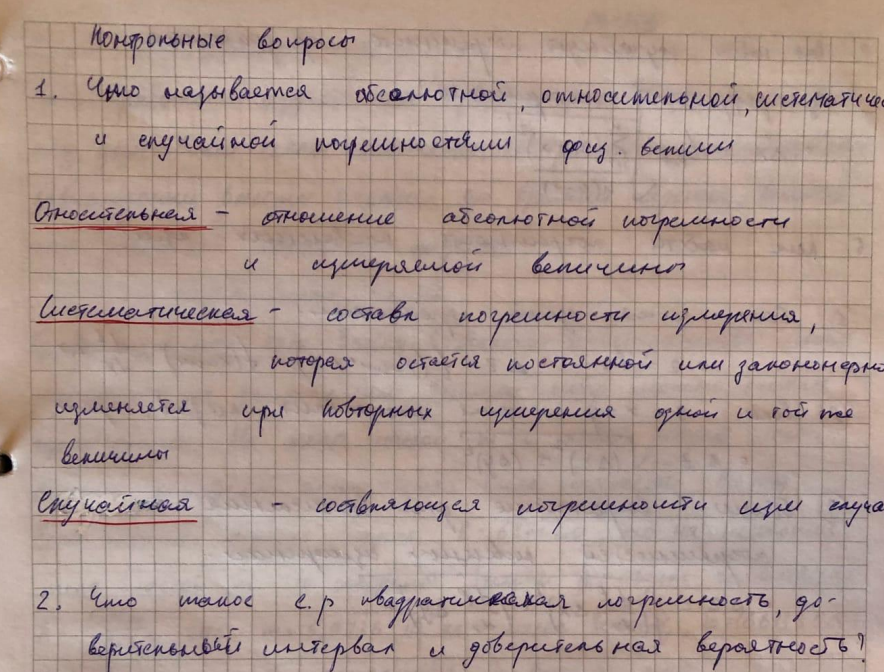 Контрольные вопросы
1. Что называется абсолютной, относительной, системати
и случайной погрешностями физ. велич
Относительная - отношение абсолютной погрешности
и измеряемой величины
Систематическая - составл погрешности измерения,
которая остается постоянной или закономерно
изменяется при повторных измерения одной и той же
величины
Случайная - погрешности изм случа
2. Что такое с.р квадратическая погрешность, до-
верительный интервал и доверительная вероятность?